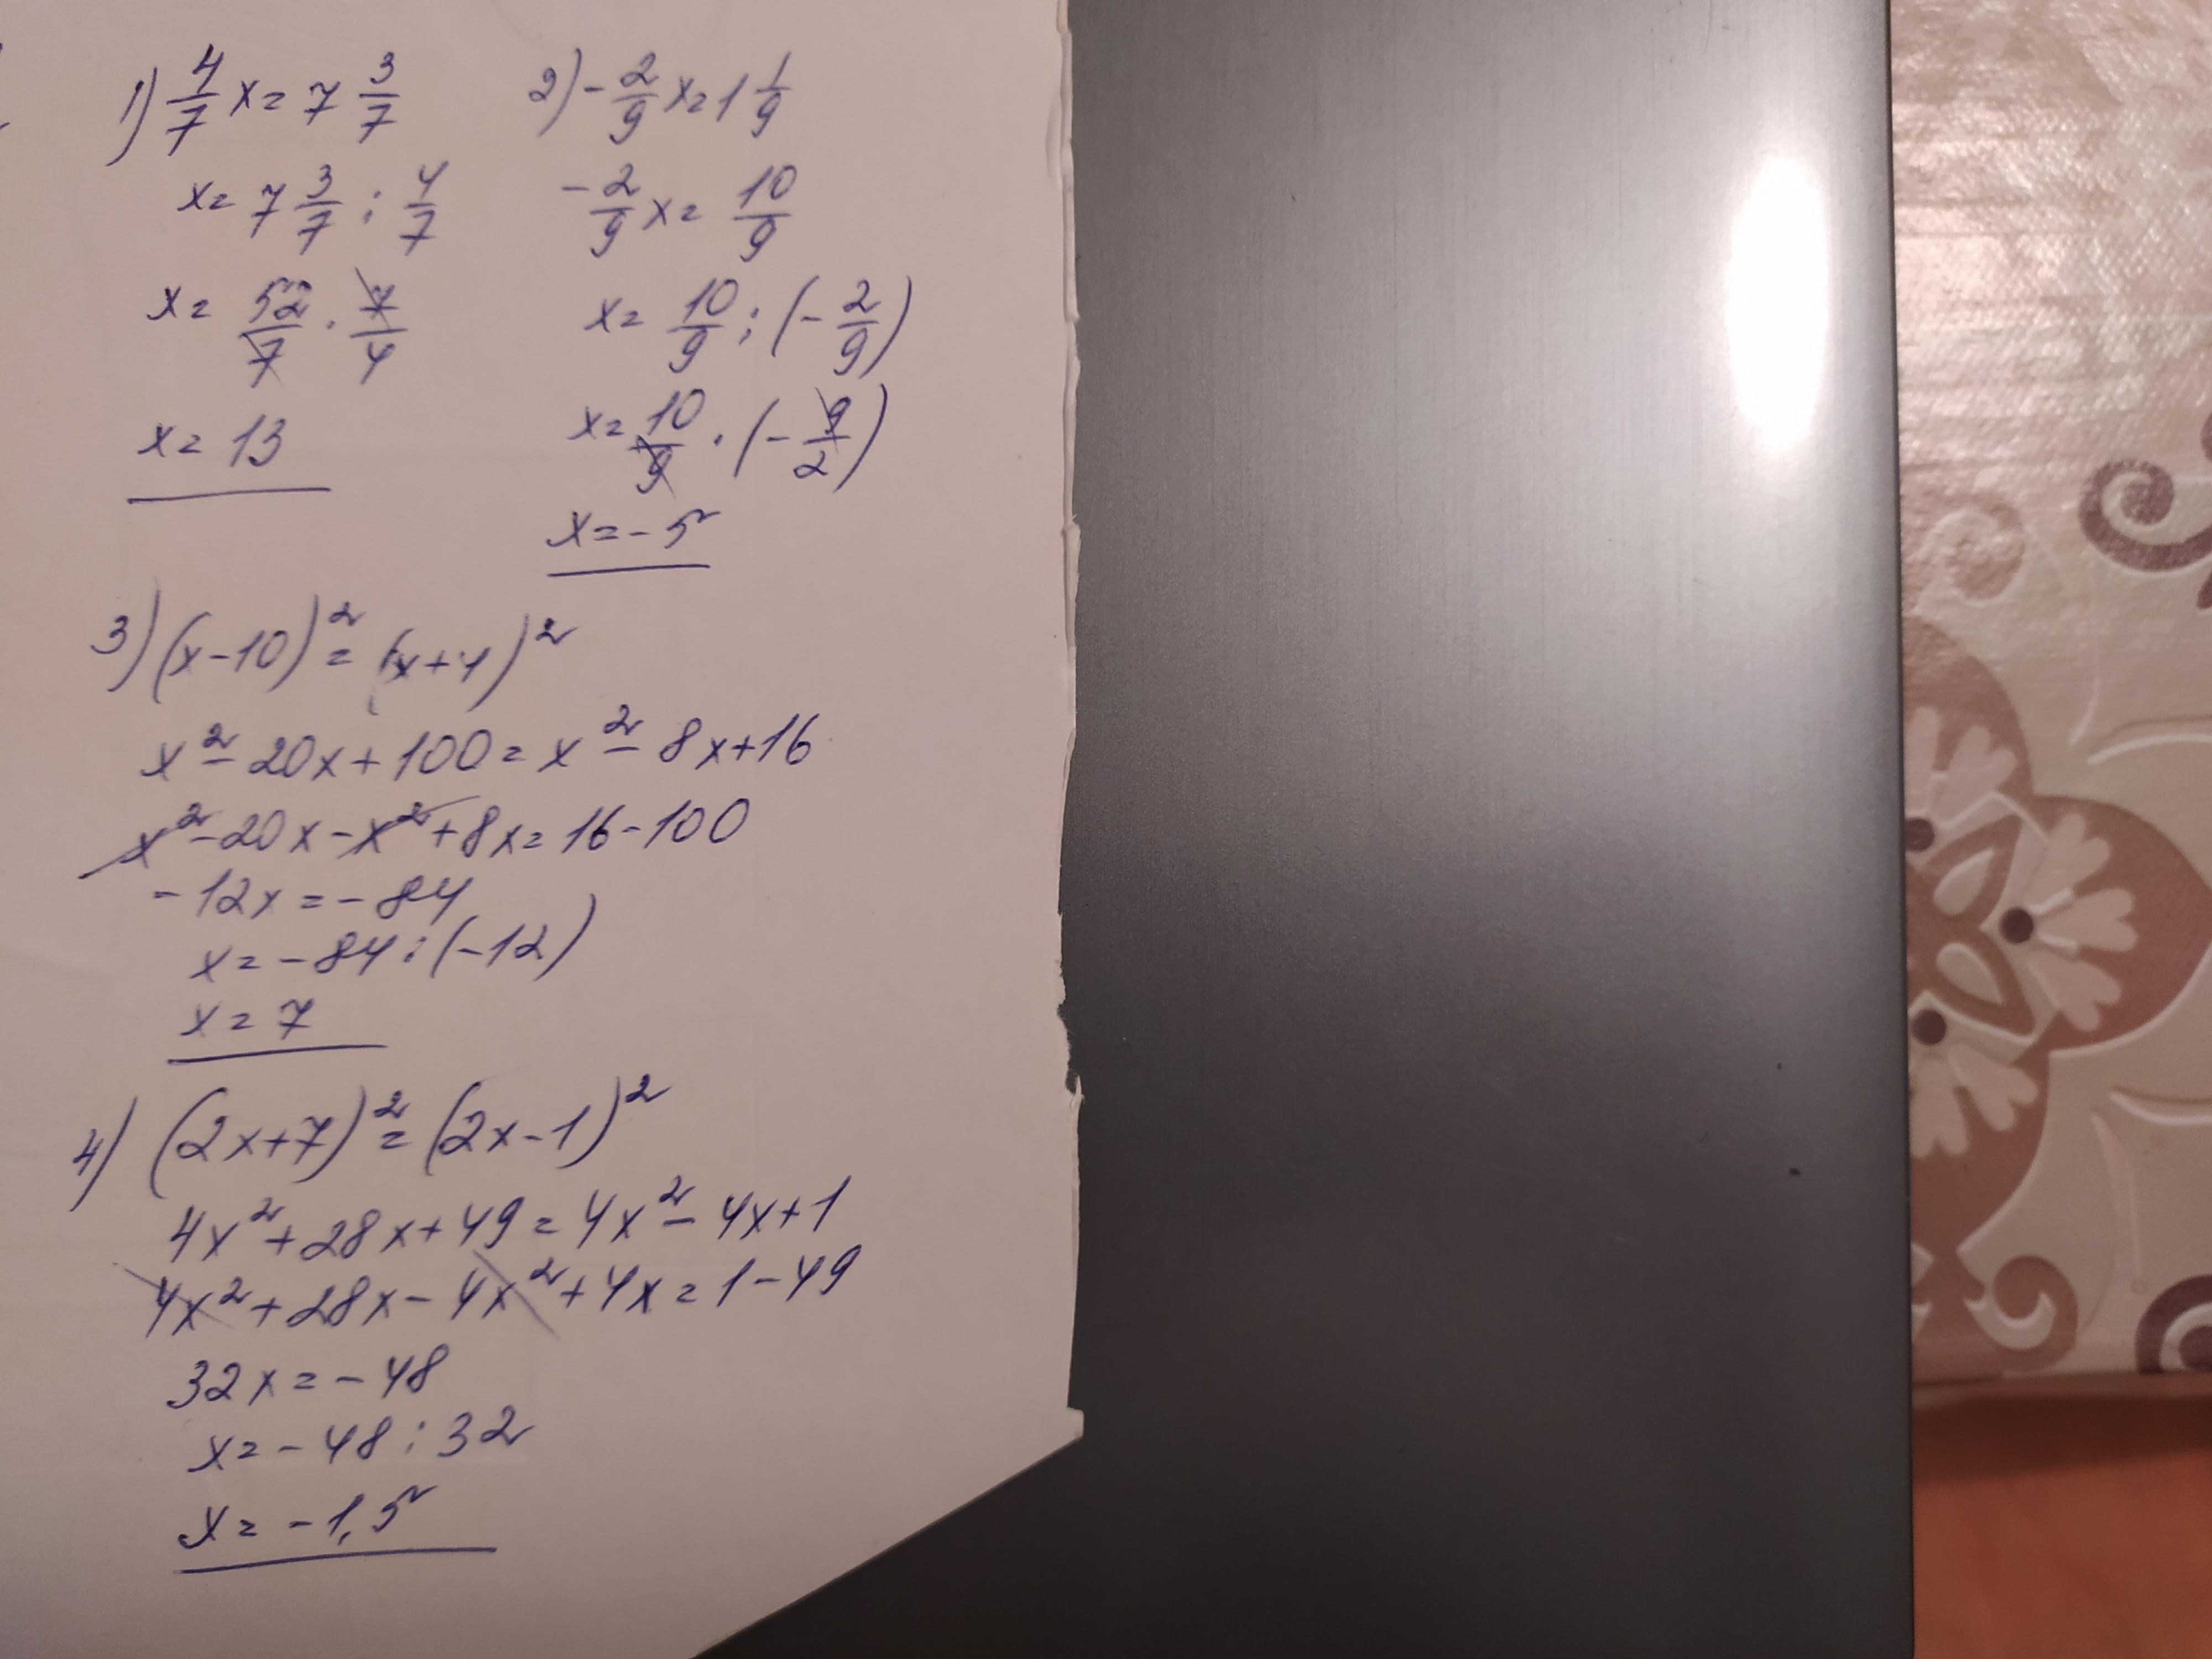 1) 4/7 x = 7 3/7
x = 7 3/7 : 4/7
x = 52/7 · 7/4
x = 13
2) - 2/9 x = 1 1/9
- 2/9 x = 10/9
x = 10/9 : (- 2/9)
x = 10/9 · (- 9/2)
x = - 5
3) (x - 10)² = (x + 4)²
x² - 20x + 100 = x² - 8x + 16
x² - 20x - x² + 8x = 16 - 100
- 12x = - 84
x = - 84 : (-12)
x = 7
4) (2x + 7)² = (2x - 1)²
4x² + 28x + 49 = 4x² - 4x + 1
4x² + 28x - 4x² + 4x = 1 - 49
32x = - 48
x = - 48 : 32
x = - 1,5